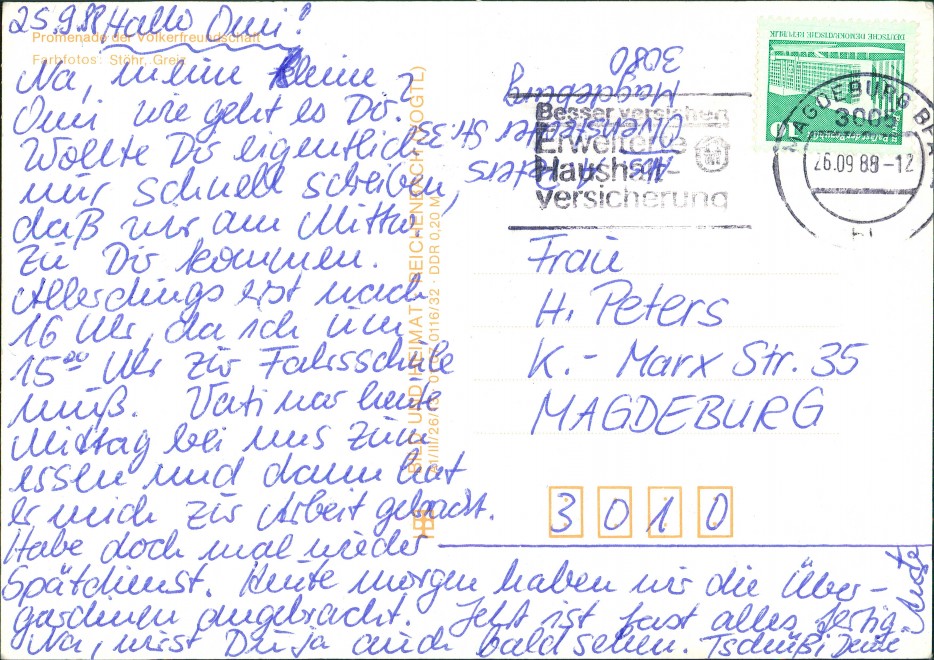 25.9.88 Hallo Omi!
Promenade der Völkerfreundschaft
Farbfotos: Stöhr, Greiz
Na, meine kleine
Omi wie geht es Dir?
Wollte Dir eigentlich
nur schnell schreiben,
daß wir am Mittw.
zu Dir kommen.
Allerdings erst nach
16 Uhr, da ich um
15⁰⁰ Uhr zur Fahrschule
muß. Vati war heute
Mittag bei uns zum
essen und dann hat
er mich zur Arbeit gebracht.
Habe doch mal wieder
Spätdienst. Heute morgen haben wir die Über-
gardinen angebracht. Jetzt ist fast alles fertig.
Na, wirst Du ja auch bald sehen. Tschüßi Deine
BILD UND HEIMAT REICHENBACH (VOGTL)
DDR 0,20 M
Peters
Olvenstedter Str. 33
Magdeburg
3080
Besser versichern
Erweiterte
Haushalt-
versicherung
DEUTSCHE DEMOKRATISCHE REPUBLIK
10
MAGDEBURG BPA
3005
26.09.88-12
Frau
H. Peters
K.- Marx Str. 35
MAGDEBURG
3010